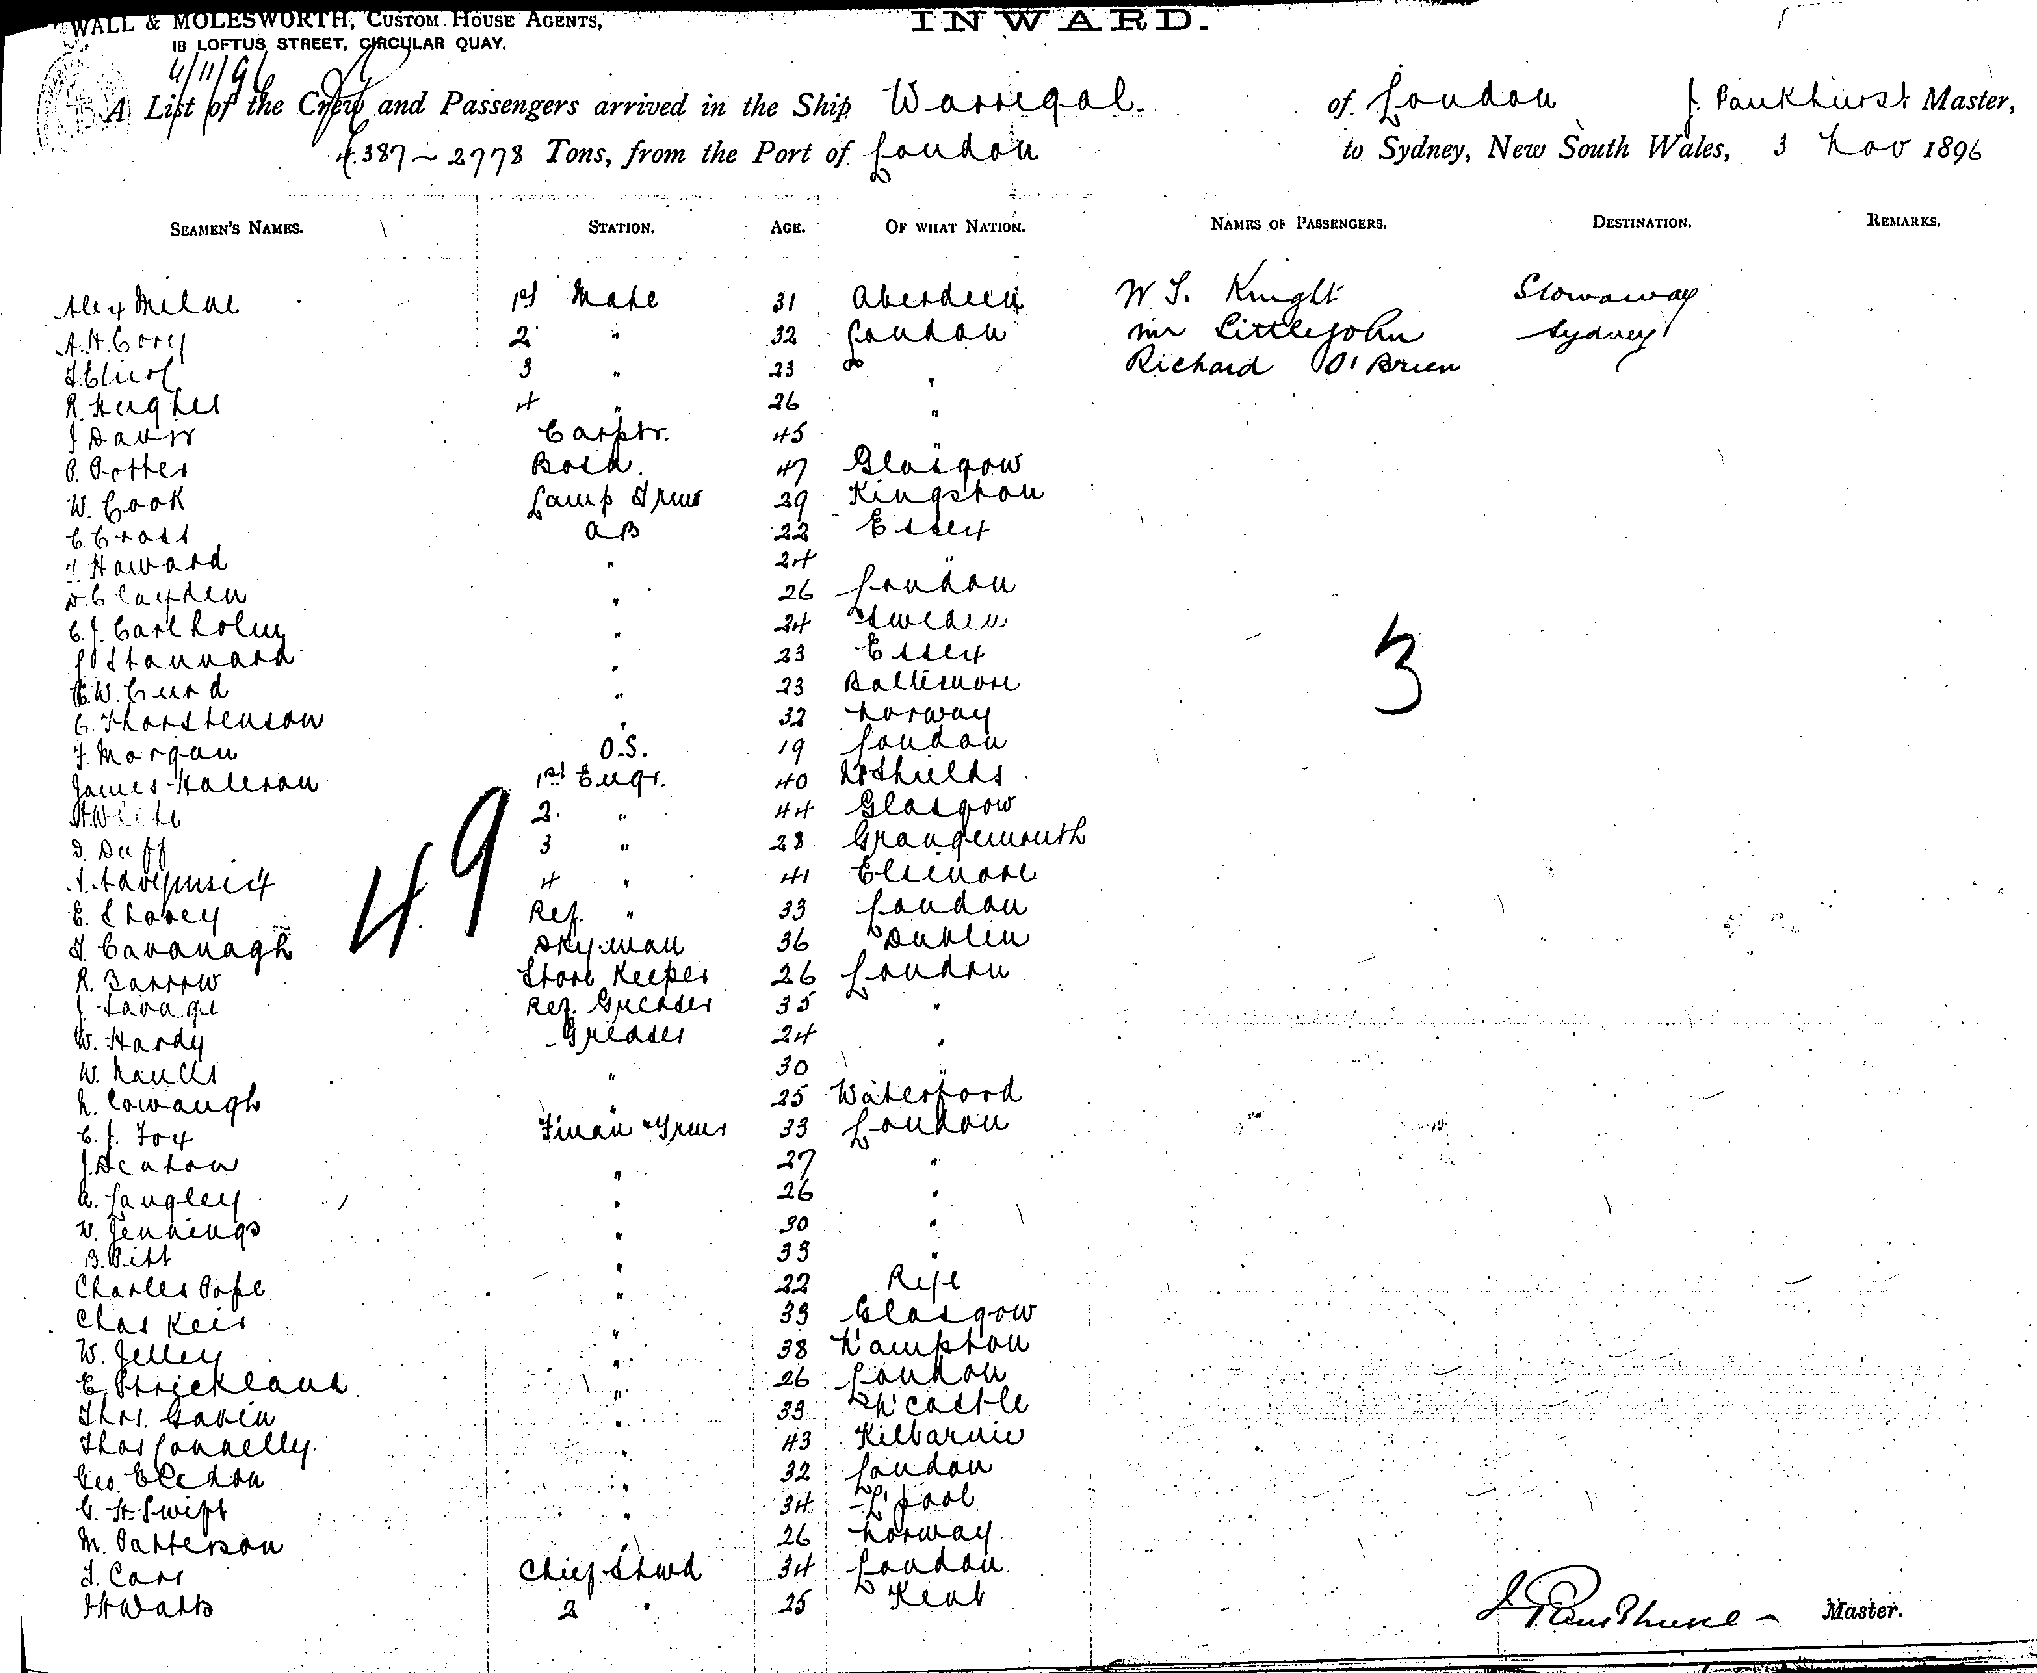 WALL & MOLESWORTH, CUSTOM HOUSE AGENTS,
18 LOFTUS STREET, CIRCULAR QUAY.
INWARD.
4/11/96
A List of the Crew and Passengers arrived in the Ship Warrigal of London J. Pankhurst Master,
4387 ~ 2778 Tons, from the Port of London to Sydney, New South Wales, 3 Nov 1896
SEAMEN'S NAMES. STATION. AGE. OF WHAT NATION. NAMES OF PASSENGERS. DESTINATION. REMARKS.
Alex Milne 1st Mate 31 Aberdeen W S. Knight Stowaway
A.H. Cory 2 " 32 London Mr Littlejohn Sydney
3 " 23 " Richard O'Brien
R. Hughes 4 " 26 "
J Davis Carptr. 45 "
P. Potter Bosn. 47 Glasgow
W. Cook Lamp Trmr 29 Kingston
C Cross AB 22 Essex
Howard " 24 "
D. Clayden " 26 London
C.J. Carlholm " 24 Sweden
Stannard " 23 Essex
C.W. Curd " 23 Baltimore
C. Thorstenson " 32 Norway
F. Morgan O.S. 19 London
James Haleron 1st Engr. 40 N. Shields
White 2. " 44 Glasgow
D. Duff 3 " 28 Grangemouth
4 " 41 Elsinore
E. Storey Ref. " 33 London
T. Cavanagh Dkyman 36 Dublin
R. Barrow Store Keeper 26 London
J. Savage Ref. Greaser 35 "
W. Hardy Greaser 24 "
W. " 30 "
N. Cowaugh " 25 Waterford
C.J. Fox Fman & Trmr 33 London
J. Denton " 27 "
A. Langley " 26 "
W. Jennings " 30 "
B. Pitt " 33 "
Charles Pope " 22 Rye
Chas Keir " 33 Glasgow
W. Jelley " 38 N'ampton
E. Strickland " 26 London
Thos. Gavin " 33 N'castle
Thos Connelly " 43 Kilbarnie
Geo. Elston " 32 London
G. H. Swift " 34 L'pool
M. Patterson " 26 Norway
T. Carr Chief Stwd 34 London
Watts 2 " 25 Kent
49
3
J Pankhurst Master.